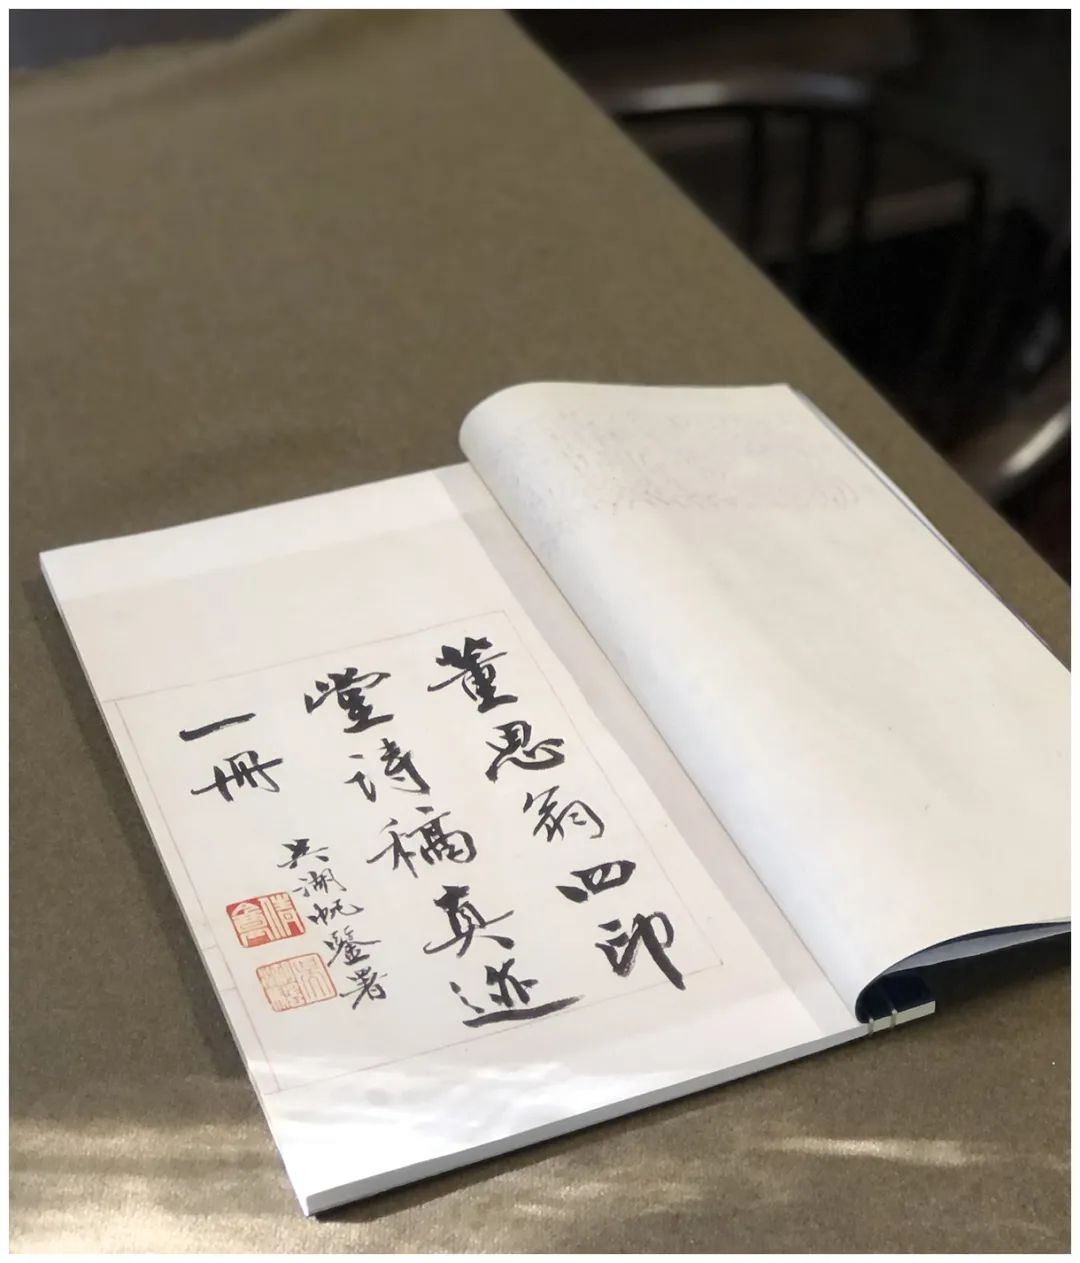 董思翁四印
堂詩稿真迹
一冊
吳湖帆鑒署
倩盦